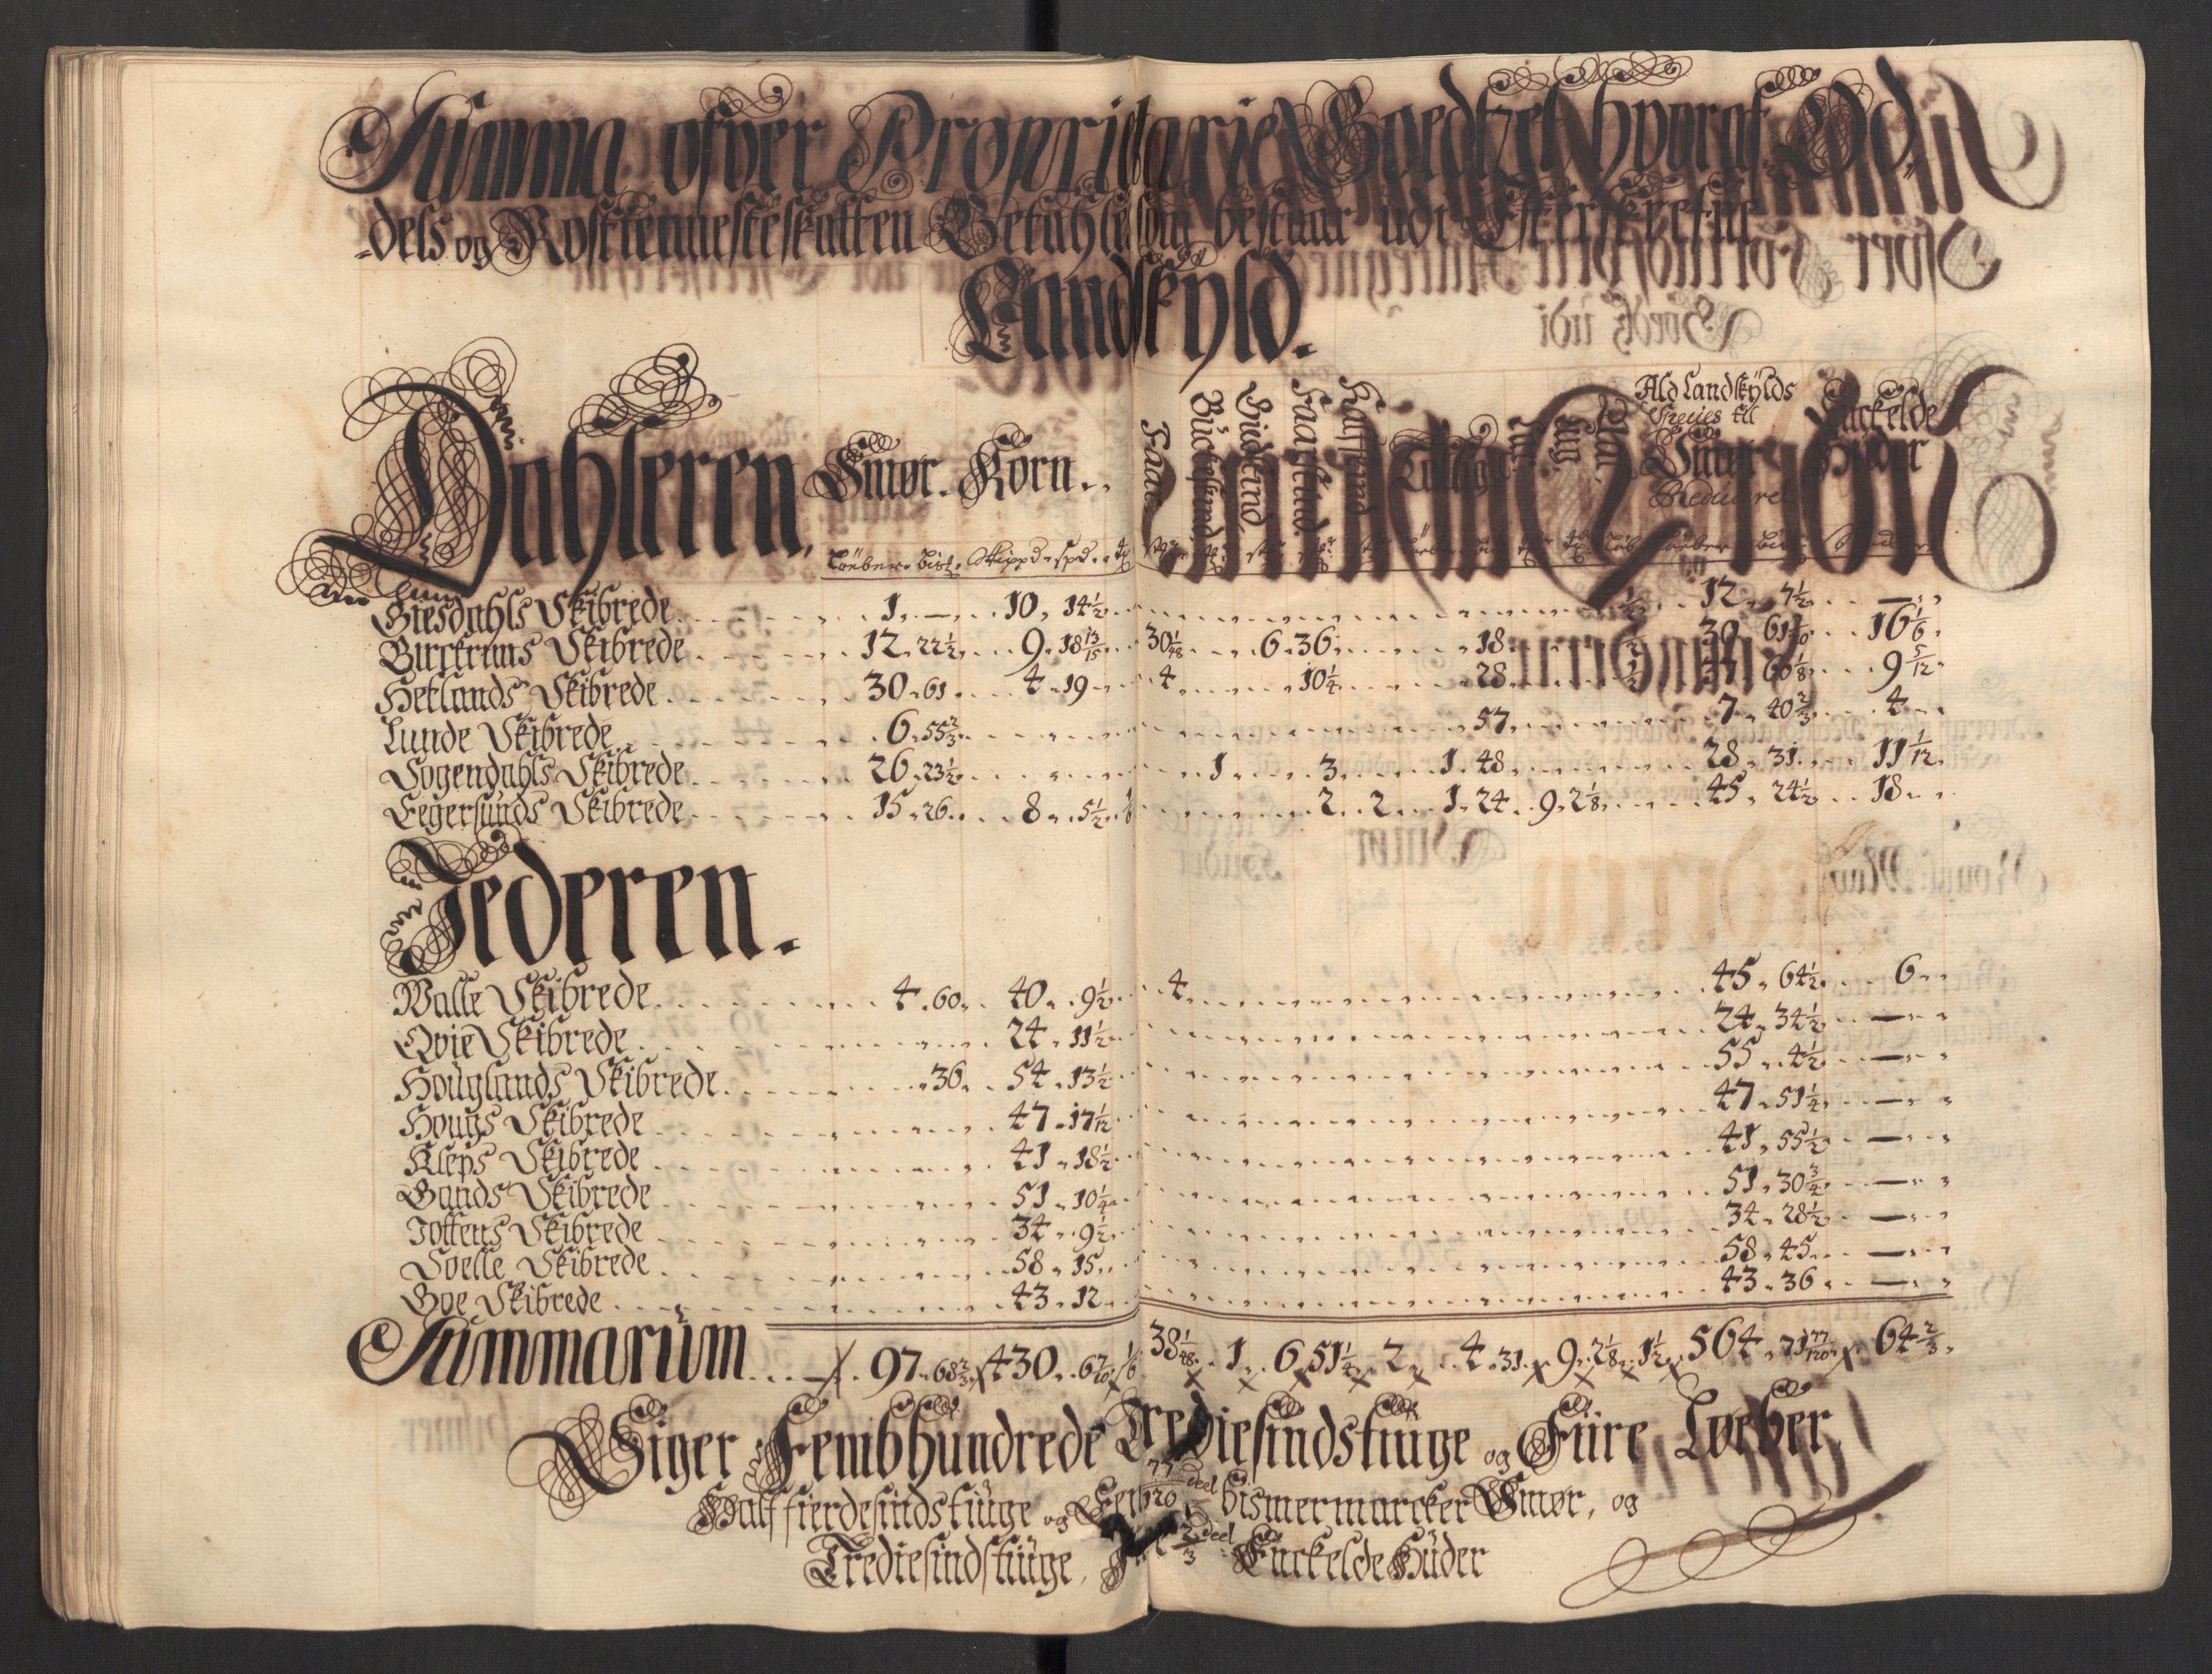 Summa ofver Proprietarie Goedtzet hvoraf Od„
„dels og Rostienneste skatten Betahles, som bestaar udi Efterskrefne
Landskyld.
Dahleren, Smør. Korn.. Faar Bückeskind, Hidskind, Faarskind, Kalfskind Ald Landkÿlds Species til Smør Reducered Enckelde Hüder
Løeber. Bis℔. Skippd. spd.
Giesdahls Skibrede 1. — 10. 14½ ½ 12. 7½ —
Birckrems Skibrede 12. 22½ 9. 18 13/15 30 1/48 6. 36 18 ½ 30 16 1/6
Hetlands Skibrede 30. 61 4. 19 4 10¼ 28 ½ 60 1/8 9 5/12
Lunde Skibrede 6. 55⅔ 57 7. 40⅔ 4
Sogendahls Skibrede 26. 23½ 1 3 1. 48 28. 31 11 1/12
Eegersunds Skibrede 15. 26 8. 5½ ⅙ 2 2 1. 24 9. 2⅛ 45. 24½ 18
Jederen.
Walle Skibrede 4. 60 40. 9½ 4 45. 64½ 6
Qvie Skibrede 24. 11½ 24. 34½ —
Houglands Skibrede 36 54. 13½ 55. 4½ —
Hougs Skibrede 47. 17 1/12 47. 51¼ —
Kleps Skibrede 41. 18½ 41. 55½ —
Gands Skibrede 51. 10¼ 51. 30¾ —
Jottens Skibrede 34. 9½ 34. 28½ —
Soelle Skibrede 58. 15 58. 45 —
Goe Skibrede 43. 12 43. 36 —
Summarum 97. 68⅔ 430. 6 7/20 ⅙ 38 1/48 1 6 51¼ 2 4. 31 9. 2⅛ 1½ 564. 71 77/120 64⅔
Siger Fembhundrede Trediesindstiuge og Fiire Løeber
Half fierdesindstiuge og Een 77/120 deel Bismermarcker Smør, og
Trediesindstiuge, Fire 2/3 deel Enckelde Hüder